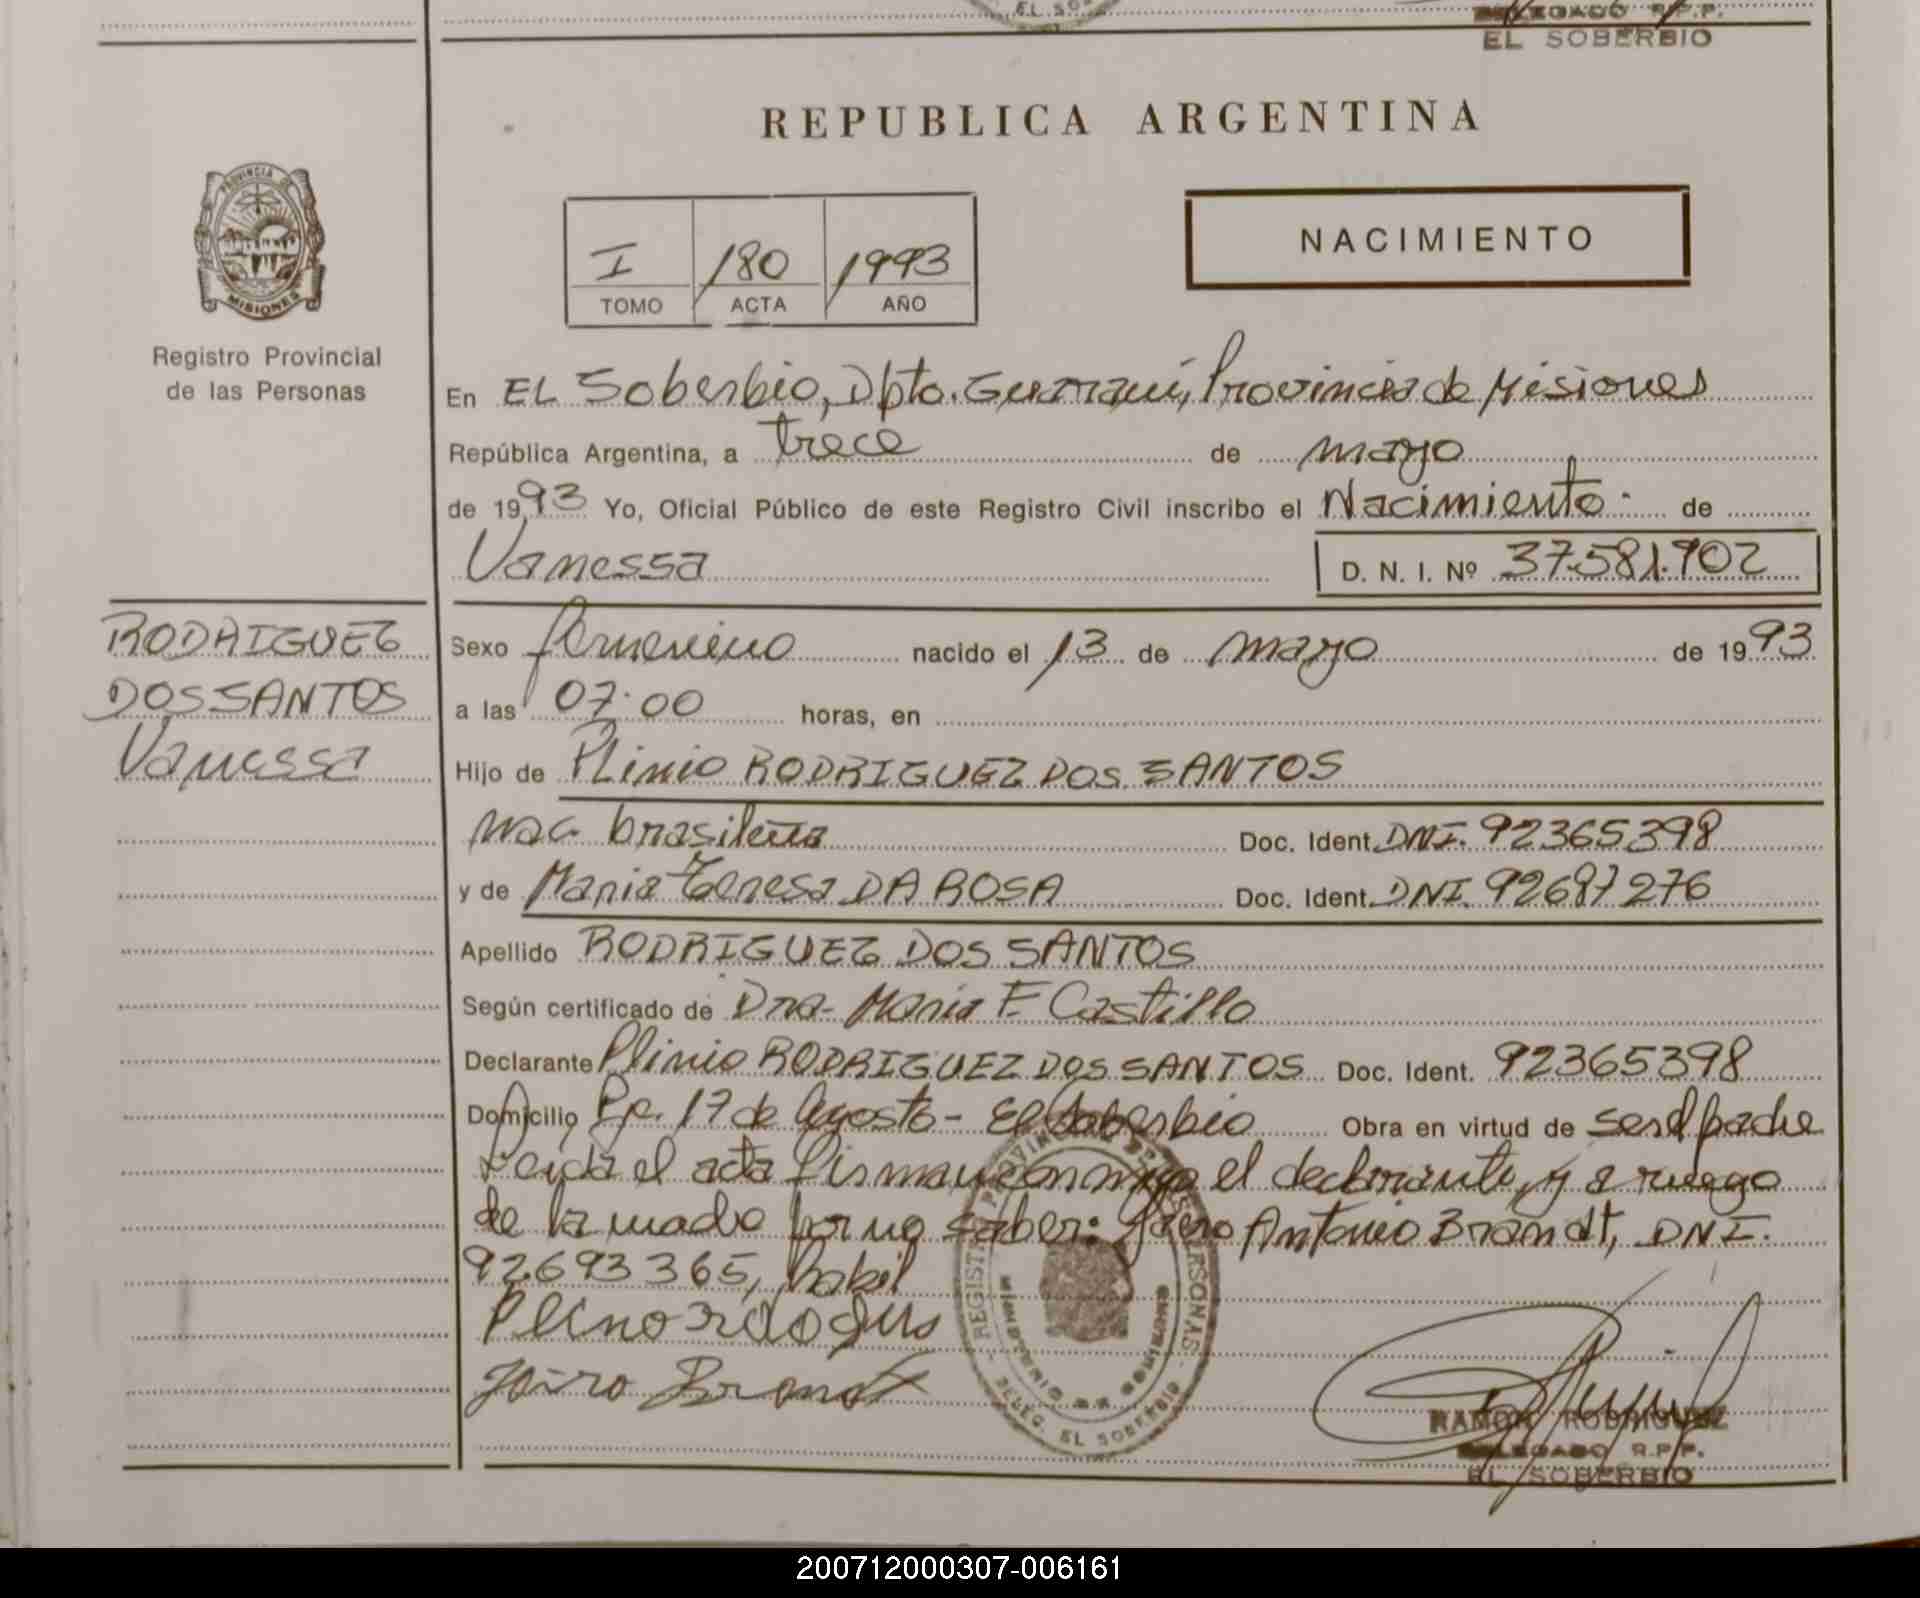 EL SO
DELEGADO R.P.P.
EL SOBERBIO
REPUBLICA ARGENTINA
PROVINCIA DE
MISIONES
Registro Provincial
de las Personas
I 180 1993
TOMO ACTA AÑO
NACIMIENTO
En EL Soberbio, Dpto. Guarani, Provincia de Misiones
República Argentina, a trece de mayo
de 1993 Yo, Oficial Público de este Registro Civil inscribo el Nacimiento de
Vanessa D. N. I. Nº 37.581.902
RODRIGUEZ
DOS SANTOS
Vanessa
Sexo femenino nacido el 13 de mayo de 1993
a las 07:00 horas, en
Hijo de Plinio RODRIGUEZ DOS SANTOS
nac. brasileña Doc. Ident. DNI. 92365398
y de Maria Teresa DA ROSA Doc. Ident. DNI. 92687276
Apellido RODRIGUEZ DOS SANTOS
Según certificado de Dra. Maria F. Castillo
Declarante Plinio RODRIGUEZ DOS SANTOS Doc. Ident. 92365398
Domicilio Pje. 17 de Agosto - El Soberbio Obra en virtud de ser el padre
Leida el acta firman conmigo el declarante, y a ruego
de la madre por no saber: Jairo Antonio Brandt, DNI.
92693365, habil
Plino
Jairo Brandt
REGISTRO PROVINCIAL DE LAS PERSONAS
MINISTERIO DE GOBIERNO
DELEG. EL SOBERBIO
RAMON RODRIGUEZ
DELEGADO R.P.P.
EL SOBERBIO
200712000307-006161